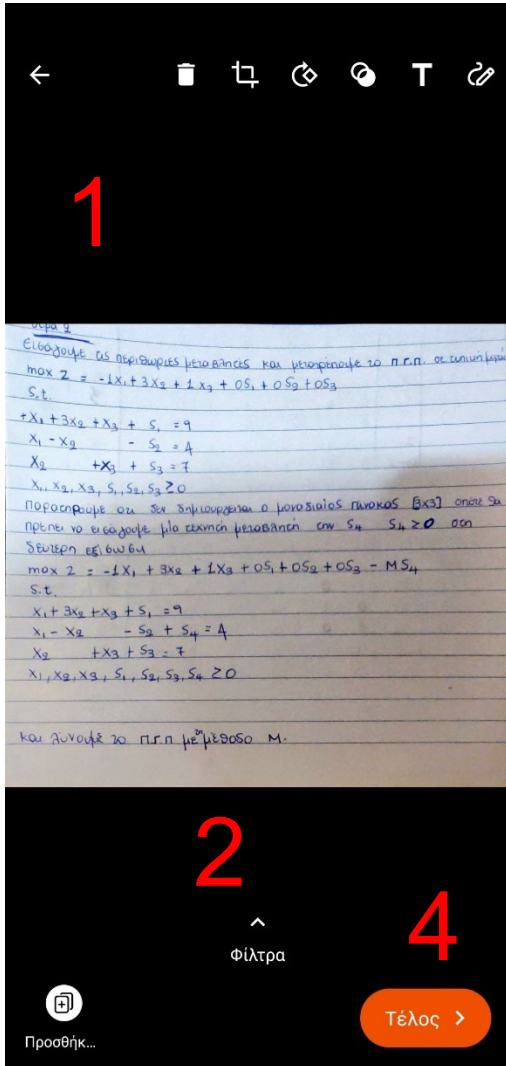 T
1
θέμα 2
Εισάγουμε τις περιθώριες μεταβλητές και μετατρέπουμε το π.γ.π. σε τυπική μορφή
max Z = -1x₁ + 3x₂ + 1x₃ + 0S₁ + 0S₂ + 0S₃
S.t.
+x₁ + 3x₂ + x₃ + S₁ = 9
x₁ - x₂ - S₂ = 4
x₂ + x₃ + S₃ = 7
x₁, x₂, x₃, S₁, S₂, S₃ ≥ 0
Παρατηρούμε ότι δεν δημιουργείται ο μοναδιαίος πίνακας [3x3] οπότε θα
πρέπει να εισάγουμε μία τεχνητή μεταβλητή την S₄ S₄ ≥ 0 στη
δεύτερη εξίσωση
max Z = -1x₁ + 3x₂ + 1x₃ + 0S₁ + 0S₂ + 0S₃ - MS₄
S.t.
x₁ + 3x₂ + x₃ + S₁ = 9
x₁ - x₂ - S₂ + S₄ = 4
x₂ + x₃ + S₃ = 7
x₁, x₂, x₃, S₁, S₂, S₃, S₄ ≥ 0
και λύνουμε το π.γ.π με τη μέθοδο M.
2
4
Φίλτρα
Τέλος >
Προσθήκ...